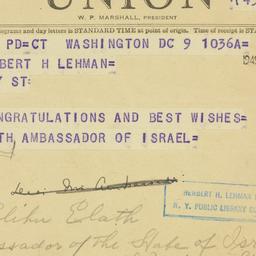 UNION
W. P. MARSHALL, PRESIDENT
egrams and day letters is STANDARD TIME at point of origin. Time of receipt is STA
PD=CT WASHINGTON DC 9 1036A=
BERT H LEHMAN=
ST:
NGRATULATIONS AND BEST WISHES=
TH AMBASSADOR OF ISRAEL=
HERBERT H. LEHMAN
N. Y. PUBLIC LIBRARY
Elihu Elath
assador of the State of Isr